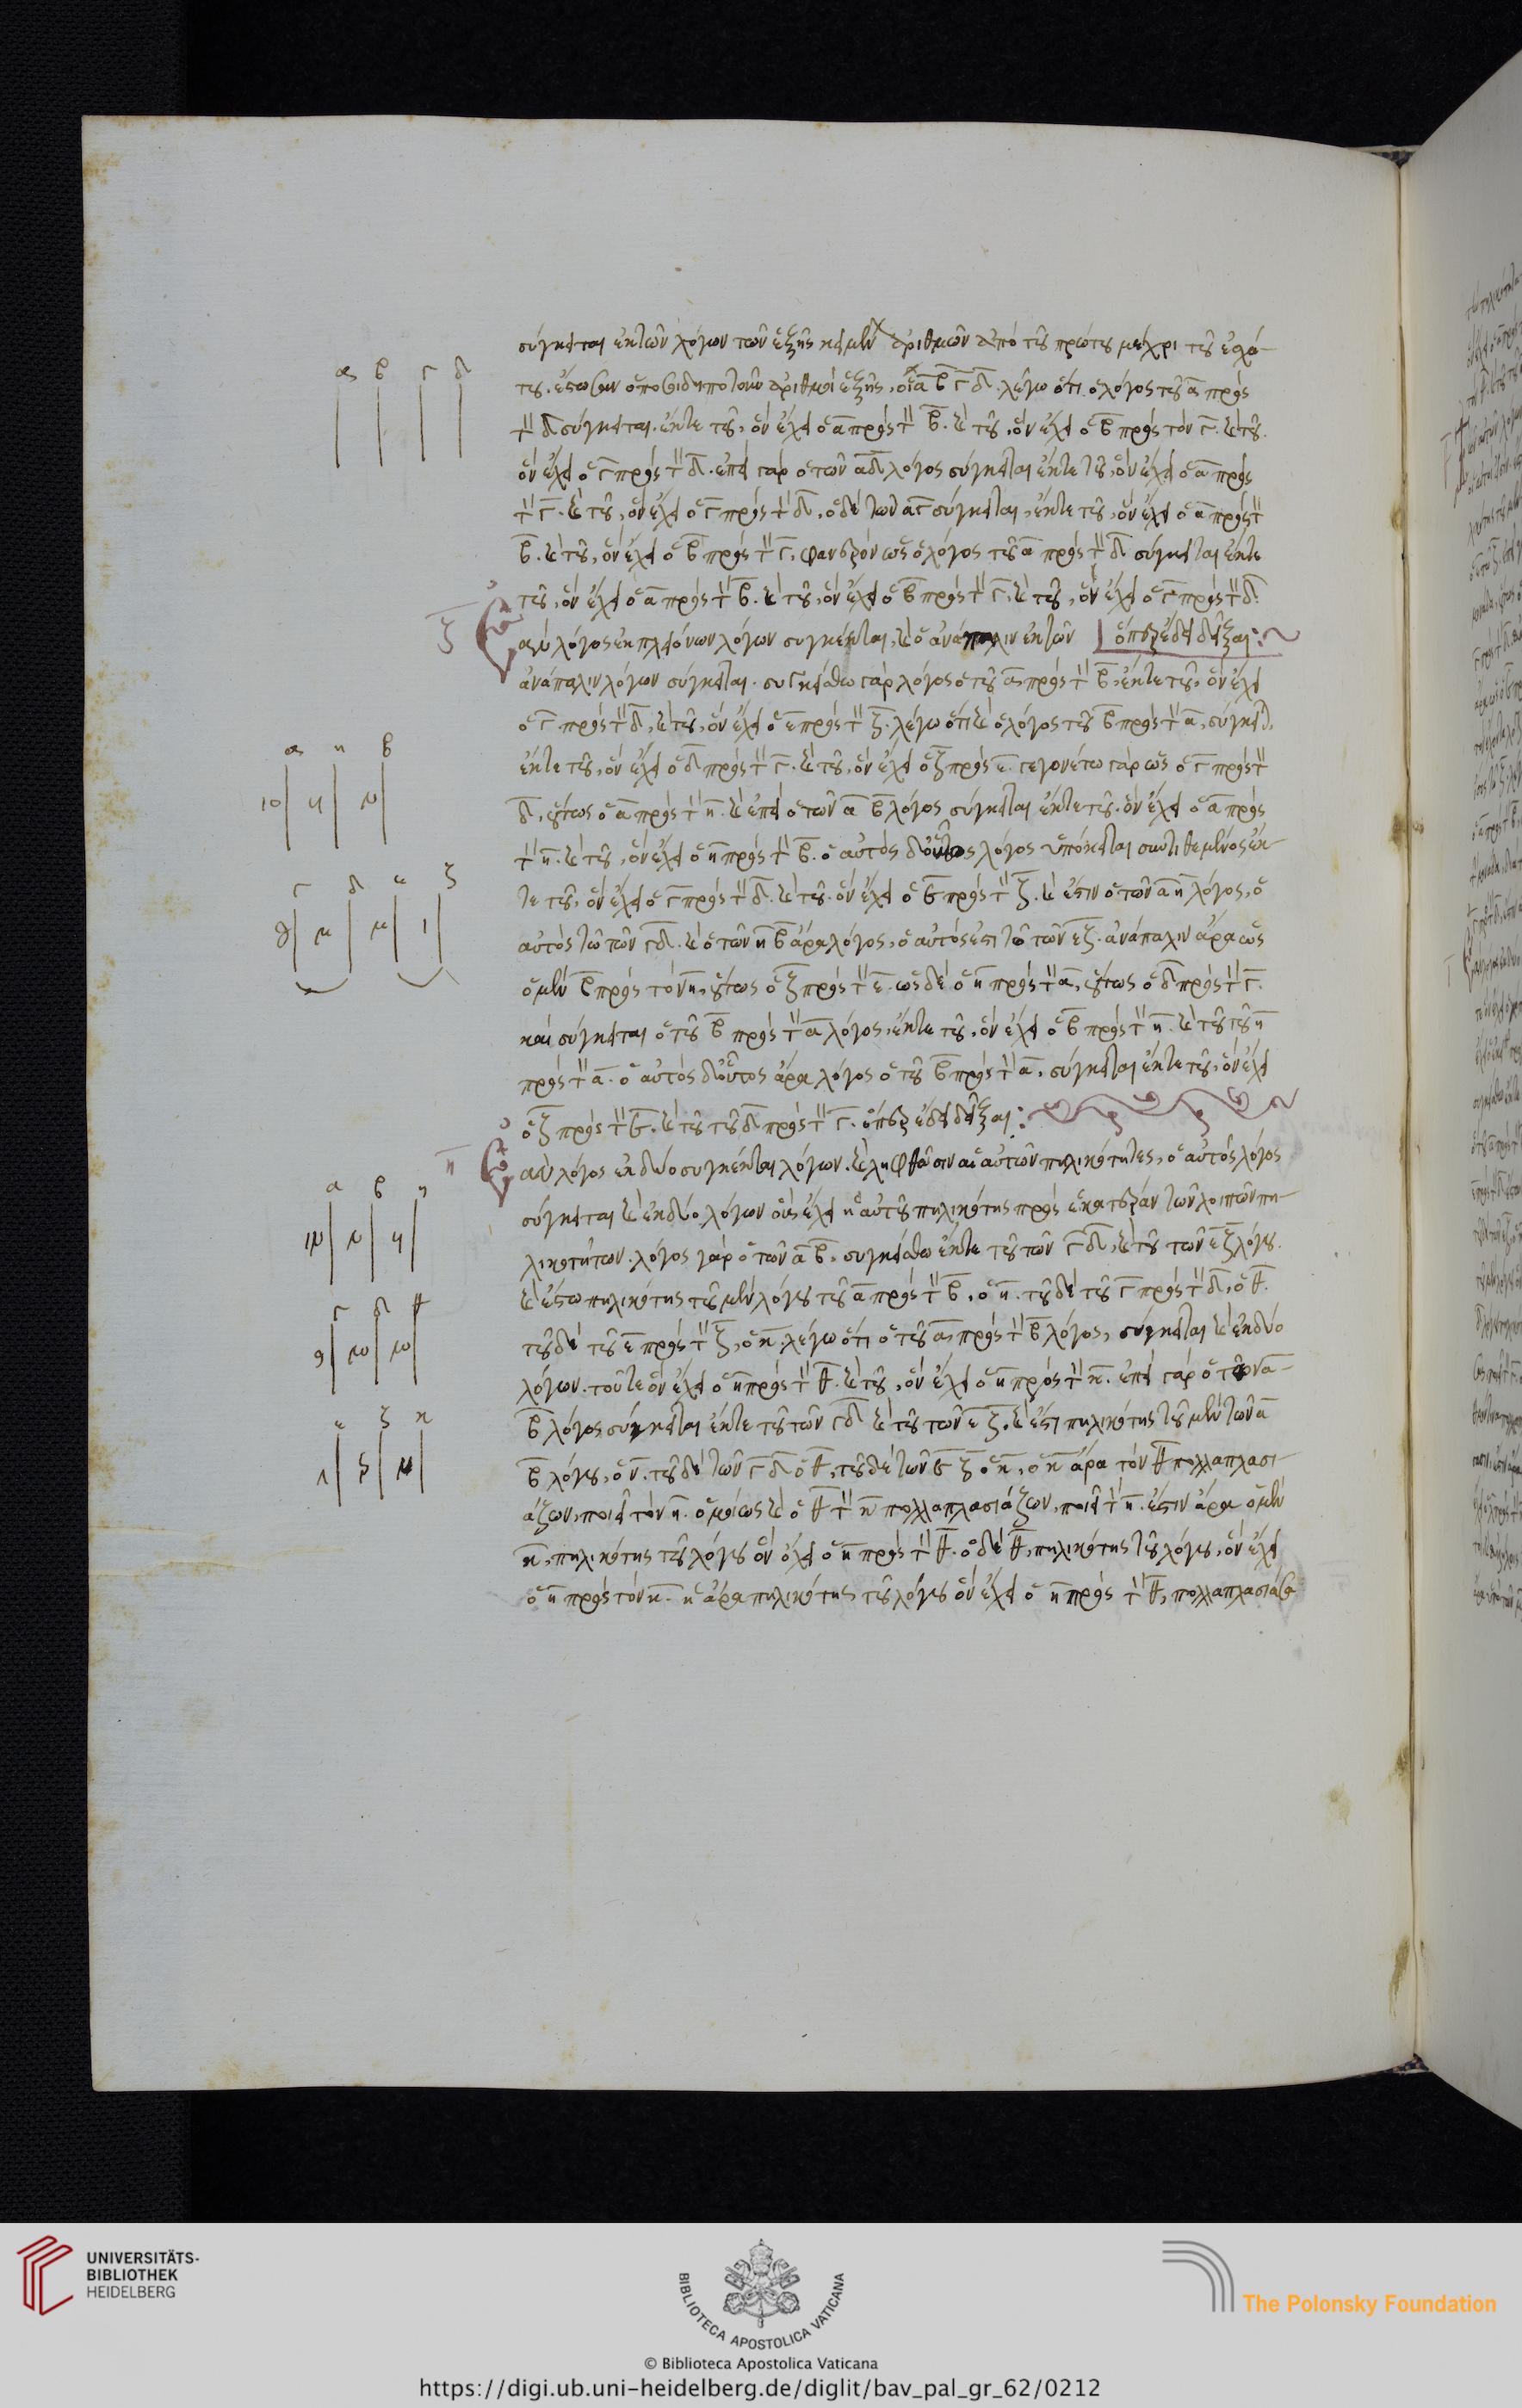 σύγκειται ἐκ τῶν λόγων τῶν ἑξῆς κειμένων ἀριθμῶν ἀπὸ τοῦ πρώτου μέχρι τοῦ ἐσχά-
του. ἔστωσαν ὁποσοιδηποτοῦν ἀριθμοὶ ἑξῆς, οἱ α β γ δ. λέγω ὅτι ὁ λόγος τοῦ α πρὸς
τὸν δ σύγκειται. ἔκ τε τοῦ, ὃν ἔχει ὁ α πρὸς τὸν β. καὶ τοῦ, ὃν ἔχει ὁ β πρὸς τὸν γ. καὶ τοῦ.
ὃν ἔχει ὁ γ πρὸς τὸν δ. ἐπεὶ γὰρ ὁ τῶν α δ λόγος σύγκειται ἔκ τε τοῦ, ὃν ἔχει ὁ α πρὸς
τὸν γ. καὶ τοῦ, ὃν ἔχει ὁ γ πρὸς τὸν δ, ὁ δὲ τῶν α γ σύγκειται, ἔκ τε τοῦ, ὃν ἔχει ὁ α πρὸς τὸν
β. καὶ τοῦ, ὃν ἔχει ὁ β πρὸς τὸν γ, φανερὸν ὡς ὁ λόγος τοῦ α πρὸς τὸν δ σύγκειται ἔκ τε
τοῦ, ὃν ἔχει ὁ α πρὸς τὸν β. καὶ τοῦ, ὃν ἔχει ὁ β πρὸς τὸν γ, καὶ τοῦ, ὃν ἔχει ὁ γ πρὸς τὸν δ.
ὅπερ ἔδει δεῖξαι:
ζ ἐὰν λόγος ἐκ πλειόνων λόγων συγκέηται, καὶ ὁ ἀνάπαλιν ἐκ τῶν
ἀνάπαλιν λόγων σύγκειται. συγκείσθω γὰρ λόγος ὁ τοῦ α πρὸς τὸν β, ἔκ τε τοῦ, ὃν ἔχει
ὁ γ πρὸς τὸν δ, καὶ τοῦ, ὃν ἔχει ὁ ε πρὸς τὸν ζ. λέγω ὅτι καὶ ὁ λόγος τοῦ β πρὸς τὸν α, σύγκειται
ἔκ τε τοῦ, ὃν ἔχει ὁ δ πρὸς τὸν γ. καὶ τοῦ, ὃν ἔχει ὁ ζ πρὸς ε. γεγονέτω γὰρ ὡς ὁ γ πρὸς τὸν
δ, οὕτως ὁ α πρὸς τὸν η. καὶ ἐπεὶ ὁ τῶν α β λόγος σύγκειται ἔκ τε τοῦ. ὃν ἔχει ὁ α πρὸς
τὸν η. καὶ τοῦ, ὃν ἔχει ὁ η πρὸς τὸν β. ὁ αὐτὸς δὲ οὗτος λόγος ὑπόκειται συντιθέμενος ἔκ
τε τοῦ, ὃν ἔχει ὁ γ πρὸς τὸν δ. καὶ τοῦ. ὃν ἔχει ὁ ε πρὸς τὸν ζ. καὶ ἔστιν ὁ τῶν α η λόγος, ὁ
αὐτὸς τῷ τῶν γ δ. καὶ ὁ τῶν η β ἄρα λόγος, ὁ αὐτός ἐστι τῷ τῶν ε ζ. ἀνάπαλιν ἄρα ὡς
ὁ μὲν β πρὸς τὸν η, οὕτως ὁ ζ πρὸς τὸν ε. ὡς δὲ ὁ η πρὸς τὸν α, οὕτως ὁ δ πρὸς τὸν γ.
καὶ σύγκειται ὁ τοῦ β πρὸς τὸν α λόγος, ἔκ τε τοῦ, ὃν ἔχει ὁ β πρὸς τὸν η. καὶ τοῦ τοῦ η
πρὸς τὸν α. ὁ αὐτὸς δὲ οὗτος ἄρα λόγος ὁ τοῦ β πρὸς τὸν α, σύγκειται ἔκ τε τοῦ, ὃν ἔχει
ὁ ζ πρὸς τὸν ε. καὶ τοῦ τοῦ δ πρὸς τὸν γ. ὅπερ ἔδει δεῖξαι:
η ἐὰν λόγος ἐκ δύο συγκέηται λόγων. καὶ ληφθῶσιν αἱ αὐτῶν πηλικότητες, ὁ αὐτὸς λόγος
σύγκειται καὶ ἐκ δύο λόγων οὓς ἔχει ἡ αὐτοῦ πηλικότης πρὸς ἑκατέραν τῶν λοιπῶν πη-
λικοτήτων. λόγος γὰρ ὁ τῶν α β, συγκείσθω ἔκ τε τοῦ τῶν γ δ, καὶ τοῦ τῶν ε ζ λόγου.
καὶ ἔστω πηλικότης τοῦ μὲν λόγου τοῦ α πρὸς τὸν β, ὁ η. τοῦ δὲ τοῦ γ πρὸς τὸν δ, ὁ θ.
τοῦ δὲ τοῦ ε πρὸς τὸν ζ, ὁ κ. λέγω ὅτι ὁ τοῦ α πρὸς τὸν β λόγος, σύγκειται καὶ ἐκ δύο
λόγων. τοῦ τε ὃν ἔχει ὁ η πρὸς τὸν θ. καὶ τοῦ, ὃν ἔχει ὁ η πρὸς τὸν κ. ἐπεὶ γὰρ ὁ τῶν α
β λόγος, σύγκειται ἔκ τε τοῦ τῶν γ δ καὶ τοῦ τῶν ε ζ. καὶ ἔστι πηλικότης τοῦ μὲν τῶν α
β λόγου, ὁ η. τοῦ δὲ τῶν γ δ ὁ θ, τοῦ δὲ τῶν ε ζ ὁ κ, ὁ κ ἄρα τὸν θ πολλαπλασι-
άζων, ποιεῖ τὸν η. ὁμοίως καὶ ὁ θ τὸν κ πολλαπλασιάζων, ποιεῖ τὸν η. ἔστιν ἄρα ὁ μὲν
κ, πηλικότης τοῦ λόγου ὃν ἔχει ὁ η πρὸς τὸν θ. ὁ δὲ θ, πηλικότης τοῦ λόγου, ὃν ἔχει
ὁ η πρὸς τὸν κ. ἡ ἄρα πηλικότης τοῦ λόγου ὃν ἔχει ὁ η πρὸς τὸν θ, πολλαπλασιασ
α β γ δ
α η β
γ δ ε ζ
α β η
γ δ θ
ε ζ κ
UNIVERSITÄTS-
BIBLIOTHEK
HEIDELBERG
BIBLIOTECA APOSTOLICA VATICANA
The Polonsky Foundation
© Biblioteca Apostolica Vaticana
https://digi.ub.uni-heidelberg.de/diglit/bav_pal_gr_62/0212